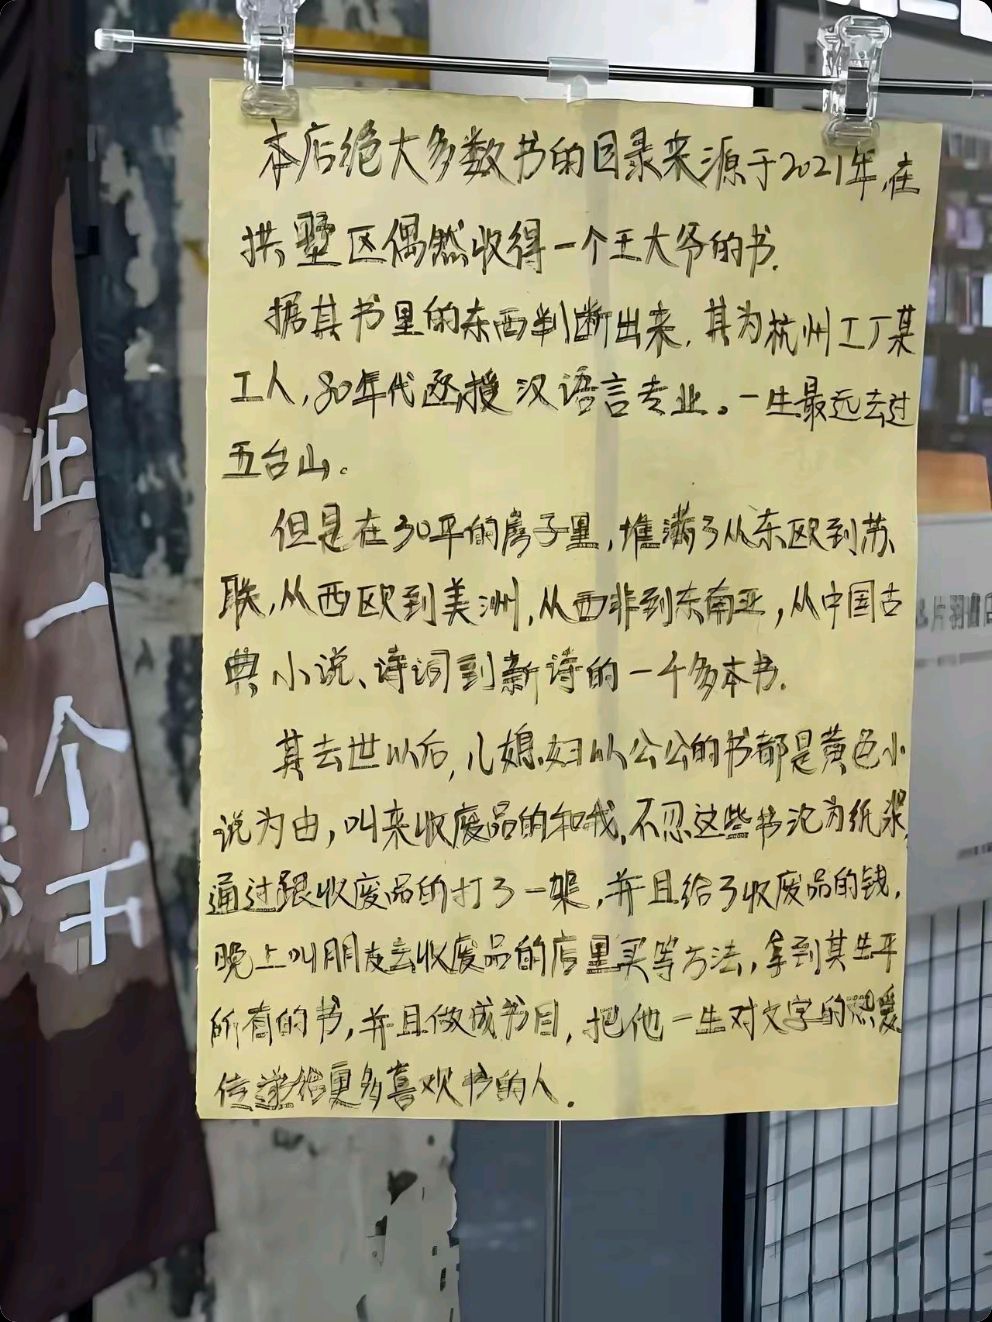 本店绝大多数书的目录来源于2021年,在
拱墅区偶然收得一个王大爷的书.
据其书里的东西判断出来,其为杭州工厂某
工人,80年代函授汉语言专业。一生最远去过
五台山。
但是在30平的房子里,堆满了从东欧到苏
联,从西欧到美洲,从西非到东南亚,从中国古
典小说、诗词到新诗的一千多本书.
其去世以后,儿媳妇以公公的书都是黄色小
说为由,叫来收废品的和我.不忍这些书沦为纸浆,
通过跟收废品的打了一架,并且给了收废品的钱,
晚上叫朋友去收废品的店里买等方法,拿到其生平
所有的书,并且做成书目,把他一生对文字的热爱
传递给更多喜欢书的人.
在一个下
片羽書店